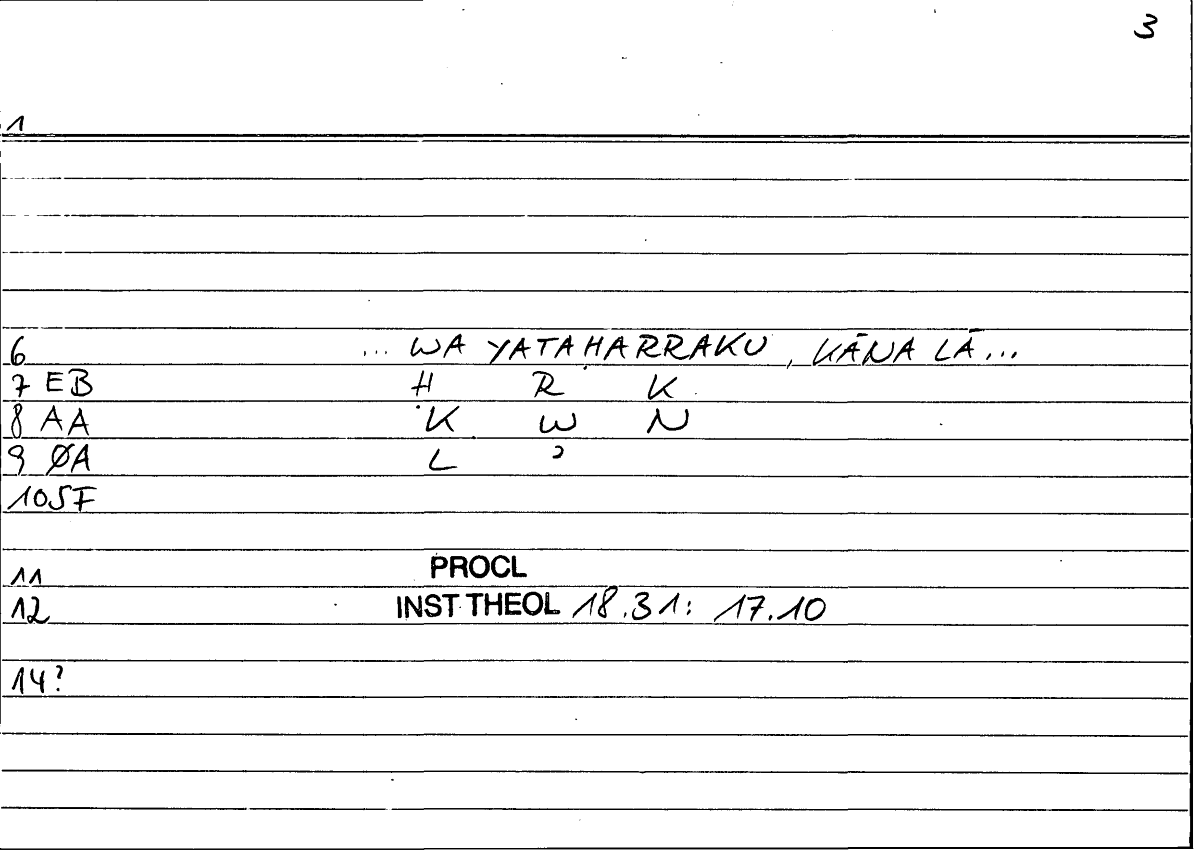 3
1
6 ... WA YATAḤARRAKU, KĀNA LĀ...
7 EB Ḥ R K
8 AA K W N
9 ØA L ʾ
10 SF
11 PROCL
12 INST THEOL 18.31: 17.10
14?